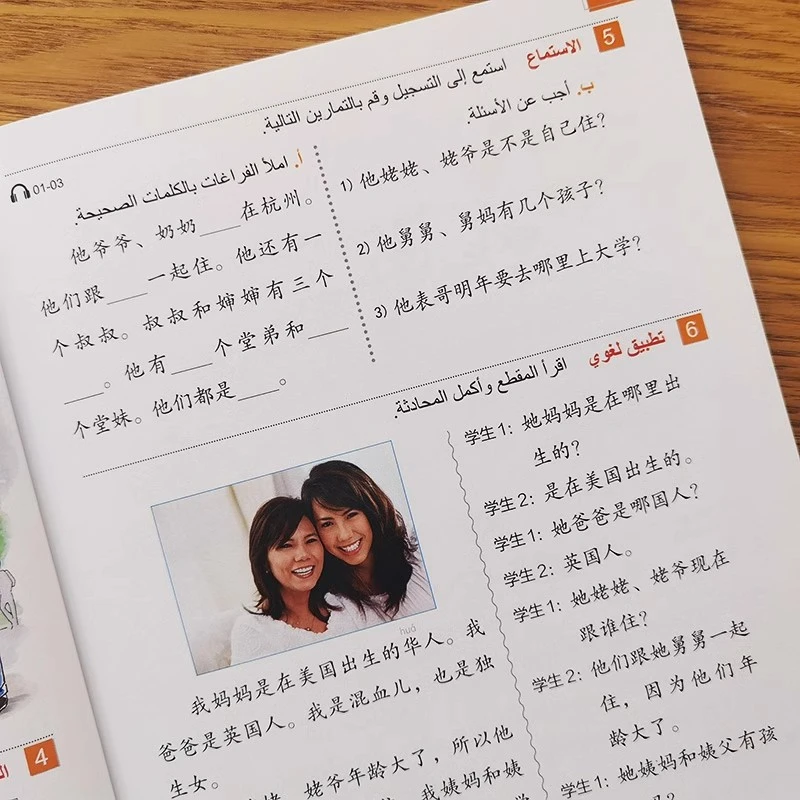 5 الاستماع استمع إلى التسجيل وقم بالتمارين التالية.
01-03
أ. املأ الفراغات بالكلمات الصحيحة.
他爷爷、奶奶____在杭州。
他们跟____一起住。他还有一
个叔叔。叔叔和婶婶有三个
____。他有____个堂弟和____
个堂妹。他们都是____。
ب. أجب عن الأسئلة.
1) 他姥姥、姥爷是不是自己住？
2) 他舅舅、舅妈有几个孩子？
3) 他表哥明年要去哪里上大学？
6 تطبيق لغوي اقرأ المقطع وأكمل المحادثة.
huá
我妈妈是在美国出生的华人。我
爸爸是英国人。我是混血儿，也是独
生女。
姥姥、姥爷年龄大了，所以他
我姨妈和姨
学生1：她妈妈是在哪里出
生的？
学生2：是在美国出生的。
学生1：她爸爸是哪国人？
学生2：英国人。
学生1：她姥姥、姥爷现在
跟谁住？
学生2：他们跟她舅舅一起
住，因为他们年
龄大了。
学生1：她姨妈和姨父有孩
4